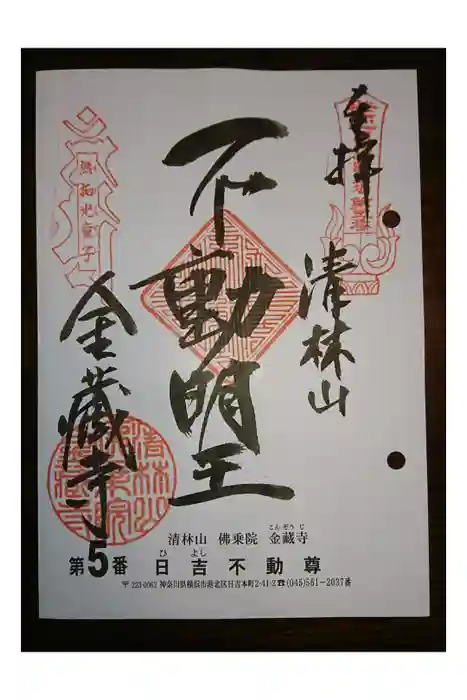 奉拝
清林山
不動明王
金藏寺
無垢光童子
清林山 佛乗院 金藏寺
こんぞうじ
第5番 日吉不動尊
ひよし
〒223-0062 神奈川県横浜市港北区日吉本町2-41-2☎(045)561-2037番